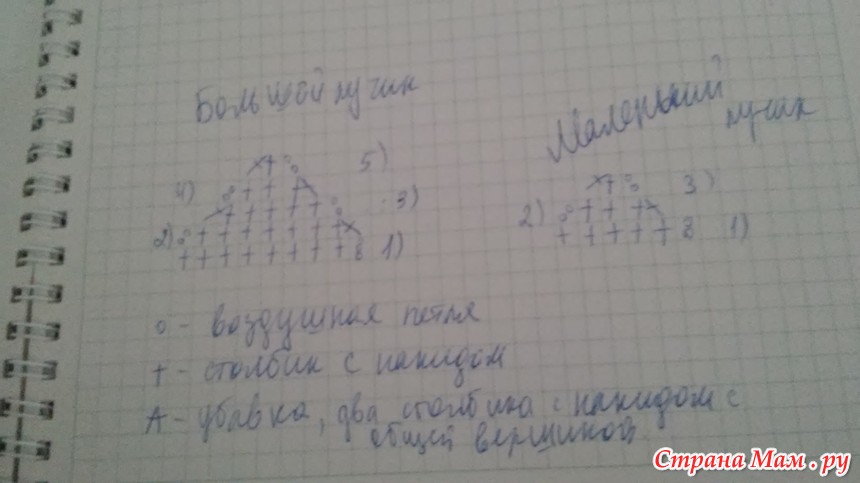 Большой лучик
Маленький
лучик
4)
5)
2)
3)
1)
2)
3)
1)
о - воздушная петля
+ - столбик с накидом
А - убавка, два столбика с накидом с
общей вершиной
Страна Мам.ру